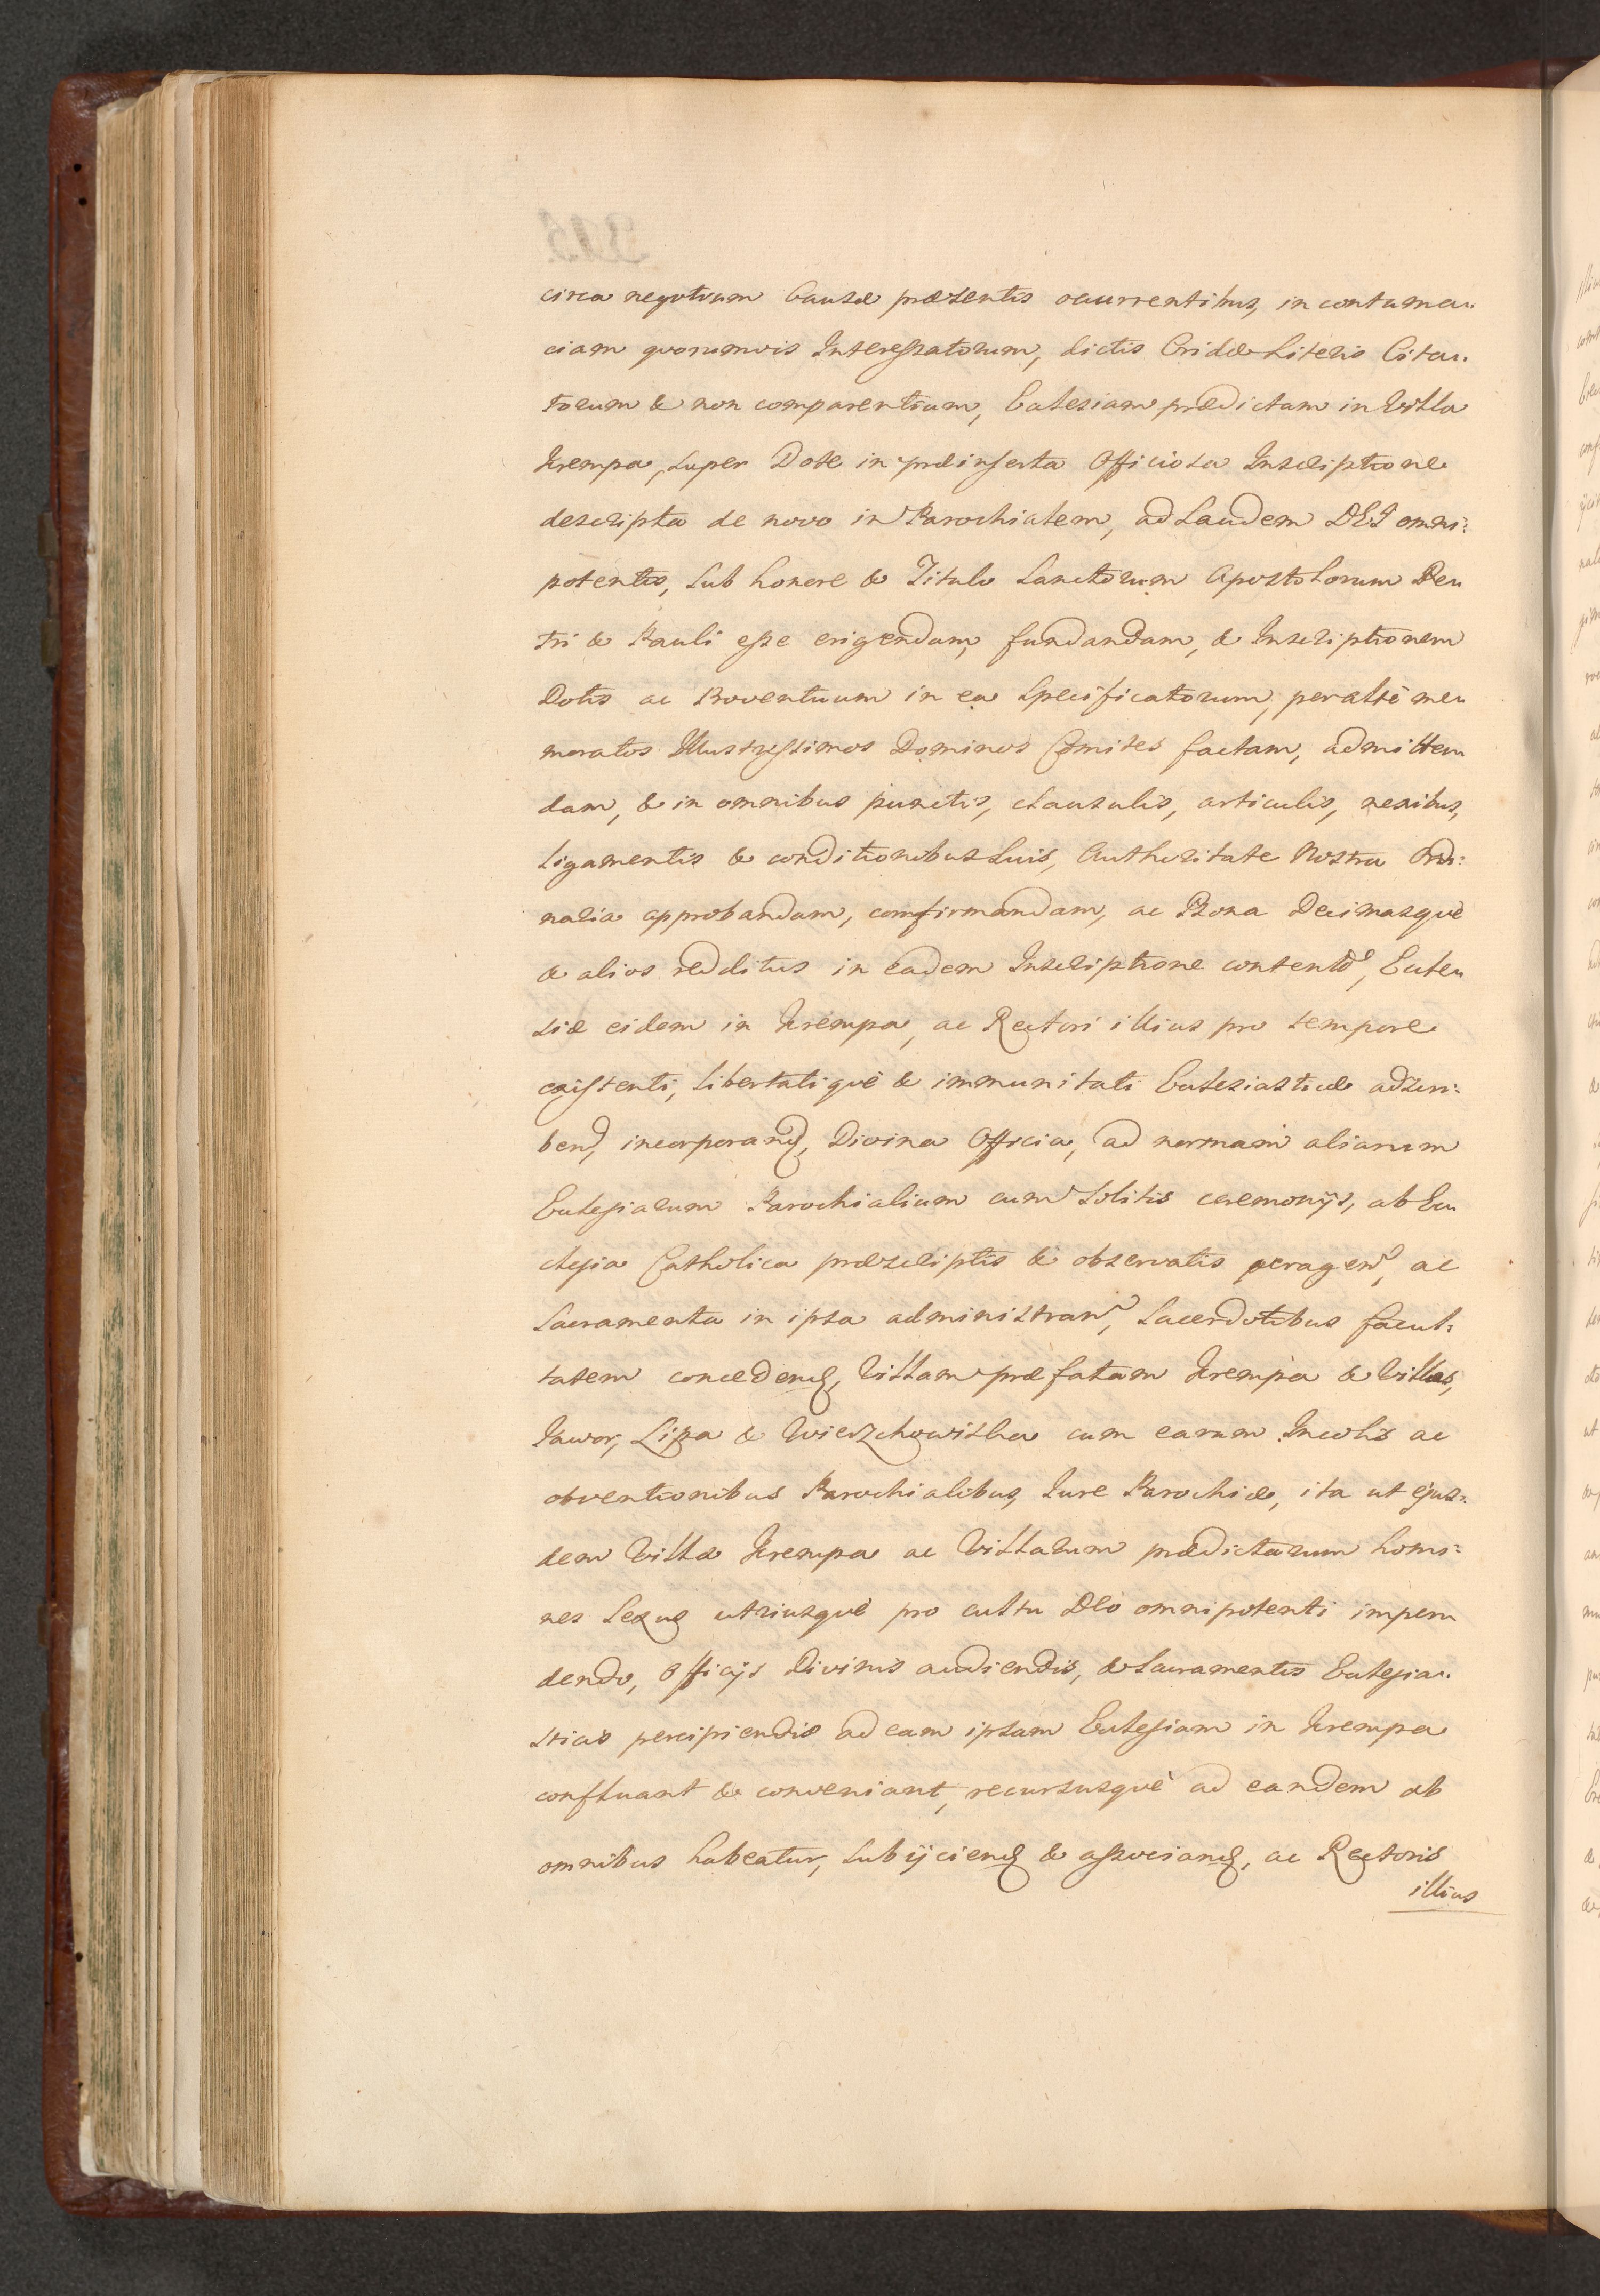 circa negotium Causæ præsentis occurrentibus, in contuma-
ciam quorumvis Interessatorum, dictis Cridæ Literis Cita-
torum & non comparentium, Ecclesiam prædictam in Villa
Krempa, super Dote in præinserta Officiosa Inscriptione
descripta de novo in Parochialem, ad Laudem DEI omni:
potentis, sub honore & Titulo Sanctorum Apostolorum Pe-
tri & Pauli esse erigendam, fundandam, & Inscriptionem
Dotis ac Proventuum in ea specificatorum, per altè me-
moratos Illustrissimos Dominos Comites factam, admitten-
dam, & in omnibus punctis, clausulis, articulis, nexibus,
ligamentis & conditionibus suis, Authoritate Nostra Ordi:
naria approbandam, confirmandam, ac Bona Decimasquè
& alios redditus in eadem Inscriptione content, Eccle-
siæ eidem in Krempa, ac Rectori illius pro tempore
existenti, libertatiquè & immunitati Ecclesiasticæ adscri:
bend, incorporand, Divina Officia, ad normam aliarum
Ecclesiarum Parochialium cum solitis ceremonijs, ab Ec-
clesia Catholica præscriptis & observatis peragend, ac
Sacramenta in ipsa administrand, Sacerdotibus facul-
tatem concedend, Villam præfatam Krempa & Villas,
Jawor, Lipa & Wierzchowiska cum earum Incolis ac
obventionibus Parochialibus, Iure Parochiæ, ita ut ejus:
dem Villæ Krempa ac Villarum prædictarum homi:
nes sexus utriusquè pro cultu DEO omnipotenti impen-
dendo, Officijs Divinis audiendis, & Sacramentis Ecclesia-
sticis percipiendis ad eam ipsam Ecclesiam in Krempa
confluant & conveniant, recursusquè ad eandem ab
omnibus habeatur, subijciend & associand, ac Rectoris
illius